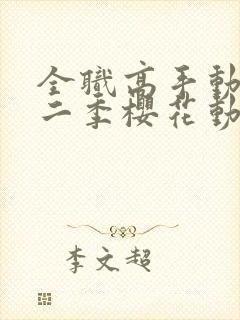 全職高手動
二季櫻花動
李文超